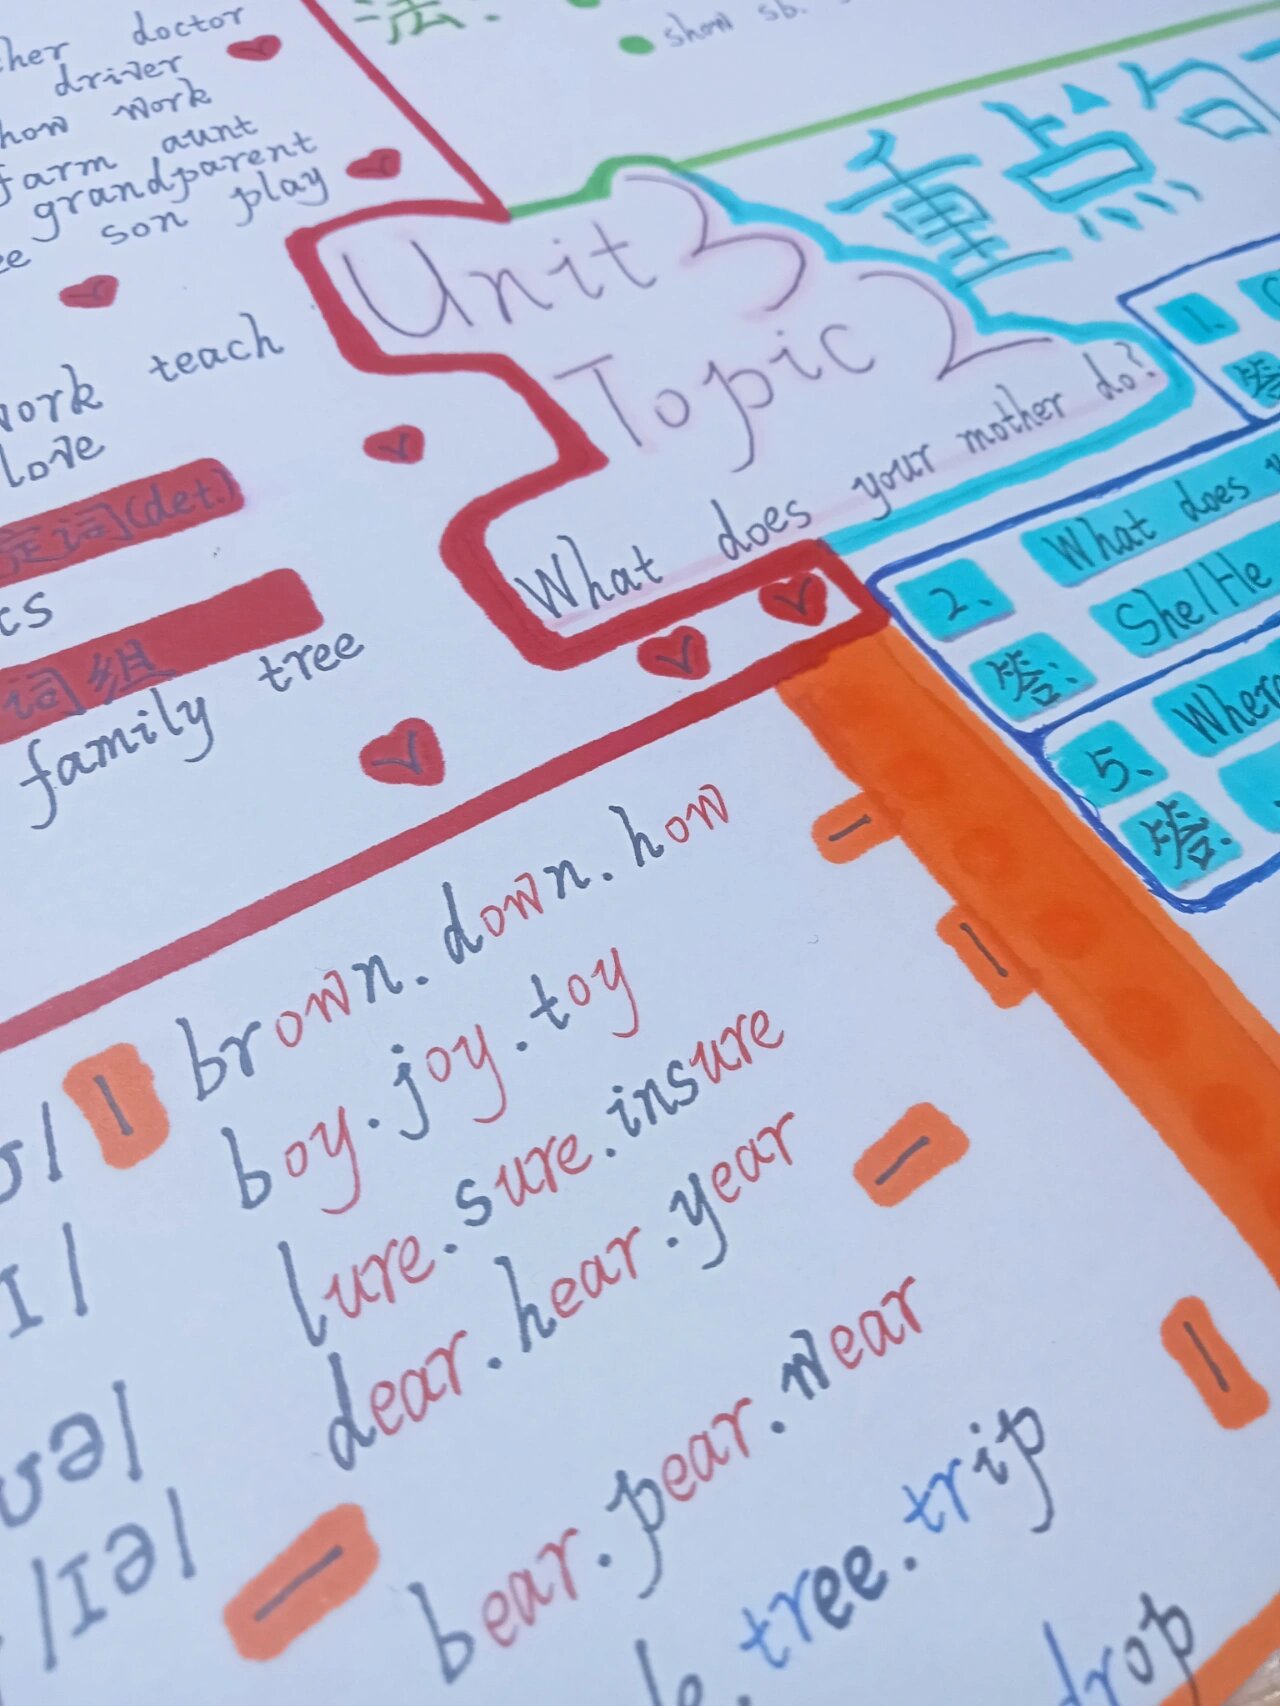 法:
show sb.
doctor
driver
work
farm aunt
grandparent
son play
teach
work
love
定词(det.)
词组
family tree
Unit 3
Topic 2
What does your mother do?
重点句
1.
答
2. What does
答: She/He
5. Where
答:
brown. down. how
boy. joy. toy
lure. sure. insure
dear. hear. year
bear. pear. wear
ʊə/
/ɪə/
tree. trip
drop